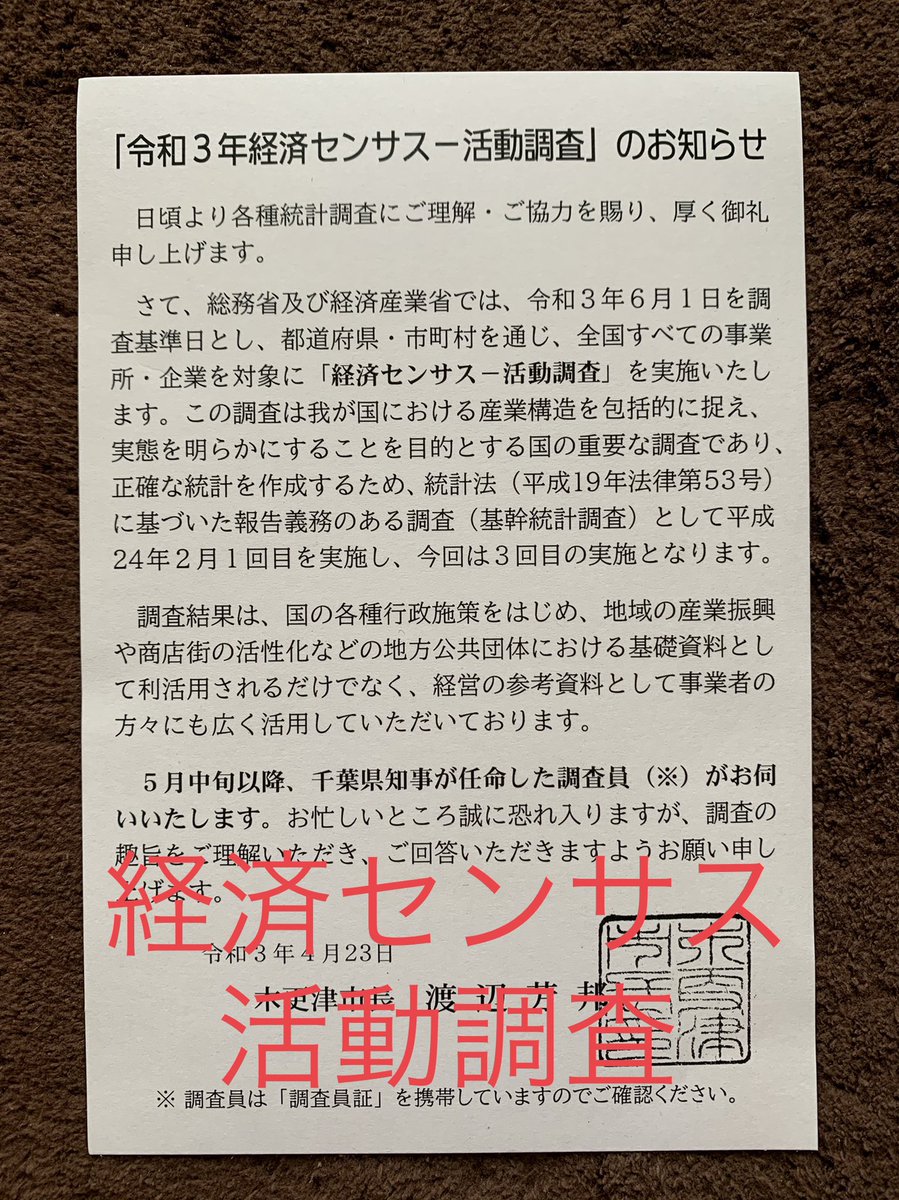 「令和３年経済センサス－活動調査」のお知らせ
日頃より各種統計調査にご理解・ご協力を賜り、厚く御礼
申し上げます。
さて、総務省及び経済産業省では、令和３年６月１日を調
査基準日とし、都道府県・市町村を通じ、全国すべての事業
所・企業を対象に「経済センサス－活動調査」を実施いたし
ます。この調査は我が国における産業構造を包括的に捉え、
実態を明らかにすることを目的とする国の重要な調査であり、
正確な統計を作成するため、統計法（平成19年法律第53号）
に基づいた報告義務のある調査（基幹統計調査）として平成
24年２月１回目を実施し、今回は３回目の実施となります。
調査結果は、国の各種行政施策をはじめ、地域の産業振興
や商店街の活性化などの地方公共団体における基礎資料とし
て利活用されるだけでなく、経営の参考資料として事業者の
方々にも広く活用していただいております。
５月中旬以降、千葉県知事が任命した調査員（※）がお伺
いいたします。お忙しいところ誠に恐れ入りますが、調査の
趣旨をご理解いただき、ご回答いただきますようお願い申し
上げます。
経済センサス
令和３年４月23日
木更津市長 渡辺芳邦
活動調査
※ 調査員は「調査員証」を携帯していますのでご確認ください。